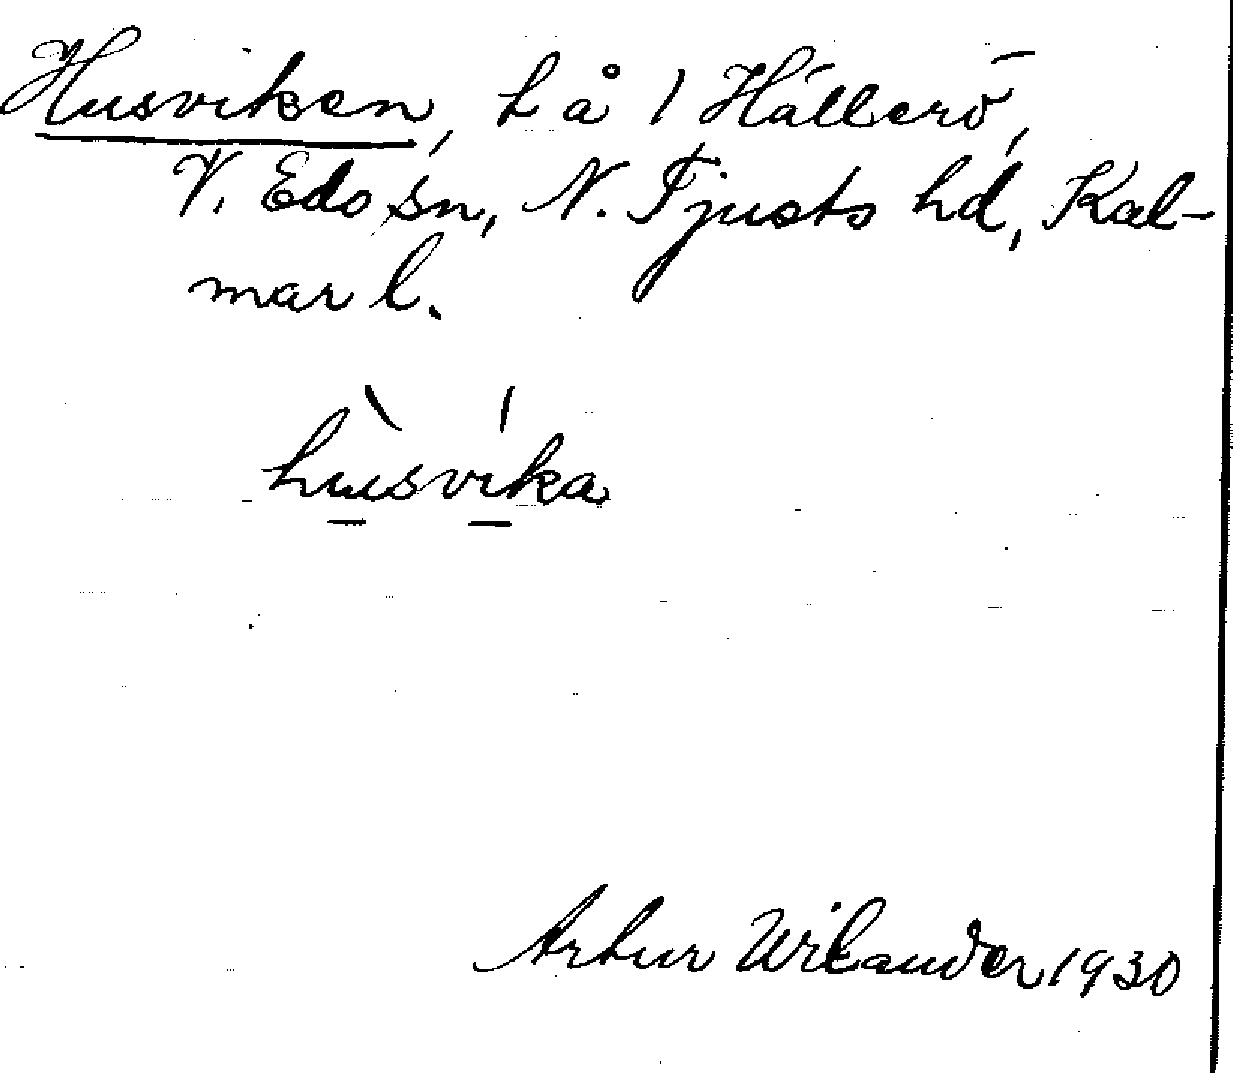 Husviken, L å 1 Hällerö,
V. Eds sn, N. Tjusts hd, Kal-
mar l.
hùsvíka
Artur Wilander 1930